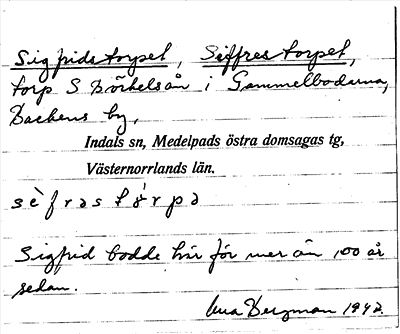 Sigfridstorpet, Seffrestorpet,
torp S Dörkelsån i Gammelbodarna,
Backens by,
Indals sn, Medelpads östra domsagas tg,
Västernorrlands län.
sè f r ə s t ó̀ r p ə
Sigfrid bodde här för mer än 100 år
sedan.
Bergman 1942.